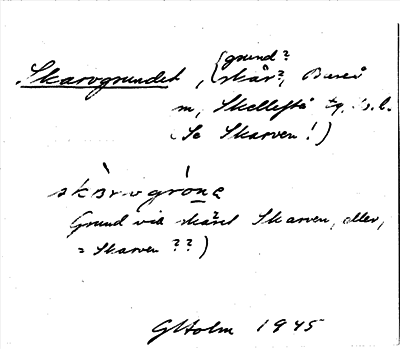 Skarvgrundet, {grund?
skär?, Bureå
m, Skellefteå tg. V.b.
(Se Skarven!)
skarvgrònę
Grund vid skäret Skarven, eller,
= Skarven ??)
GHolm 1945